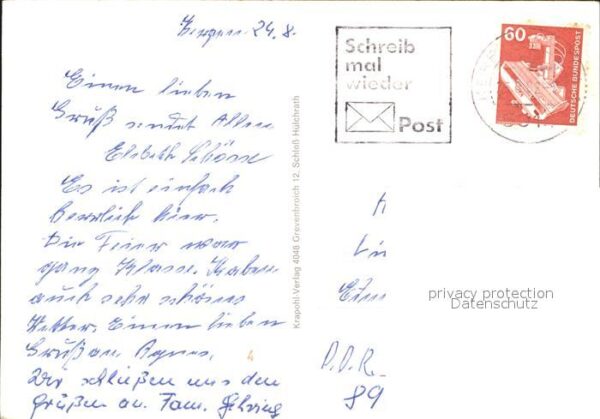 Bergen 24.8.
Einen lieben
Gruß sendet Allen
Elsbeth
Es ist einfach
herrlich hier.
Die Feier war
ganz Klasse. Haben
auch sehr schönes
Wetter. Einen lieben
Gruß an Agnes.
Wir schließen uns den
Grüßen an. Fam. Gehring
4
Krapohl-Verlag 4048 Grevenbroich 12, Schloß Hülchrath
Schreib
mal
wieder
Post
60
DEUTSCHE BUNDESPOST
privacy protection
Datenschutz
D.D.R.
89